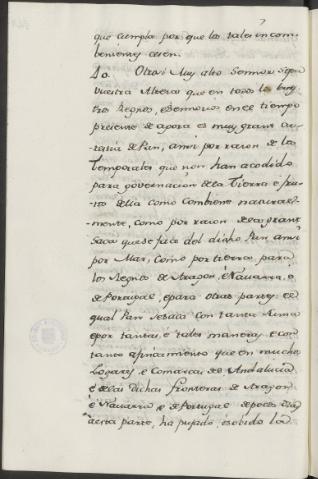 que cumpla por que los tales incom-
benientes cesen.
10. Otrosi Muy alto Sennor Sepa
vuestra Alteza que en todos los buestros
Regnos, e Sennorios en este tiempo
presente de agora es muy grant ca-
restia de Pan, ansi por razon de los
Temporales que non han acodido
para governacion de la Tierra e fru-
tos della como combiene natural-
mente, como por razon de la grant
Saca que se face del dicho Pan, ansi
por Mar, como por tierra, para
los Regnos de Aragon, e Navarra, e
de Portugal, e para otras partes: el
qual Pan se saca con tanta suma
e por tantas, e tales maneras, e con
tanto afincamiento que en muchos
Logares e Comarcas de Andalucia
e de las dichas fronteras de Aragon
e Navarra e de Portugal de pocos dias
a esta parte, ha pujado, e sobido la